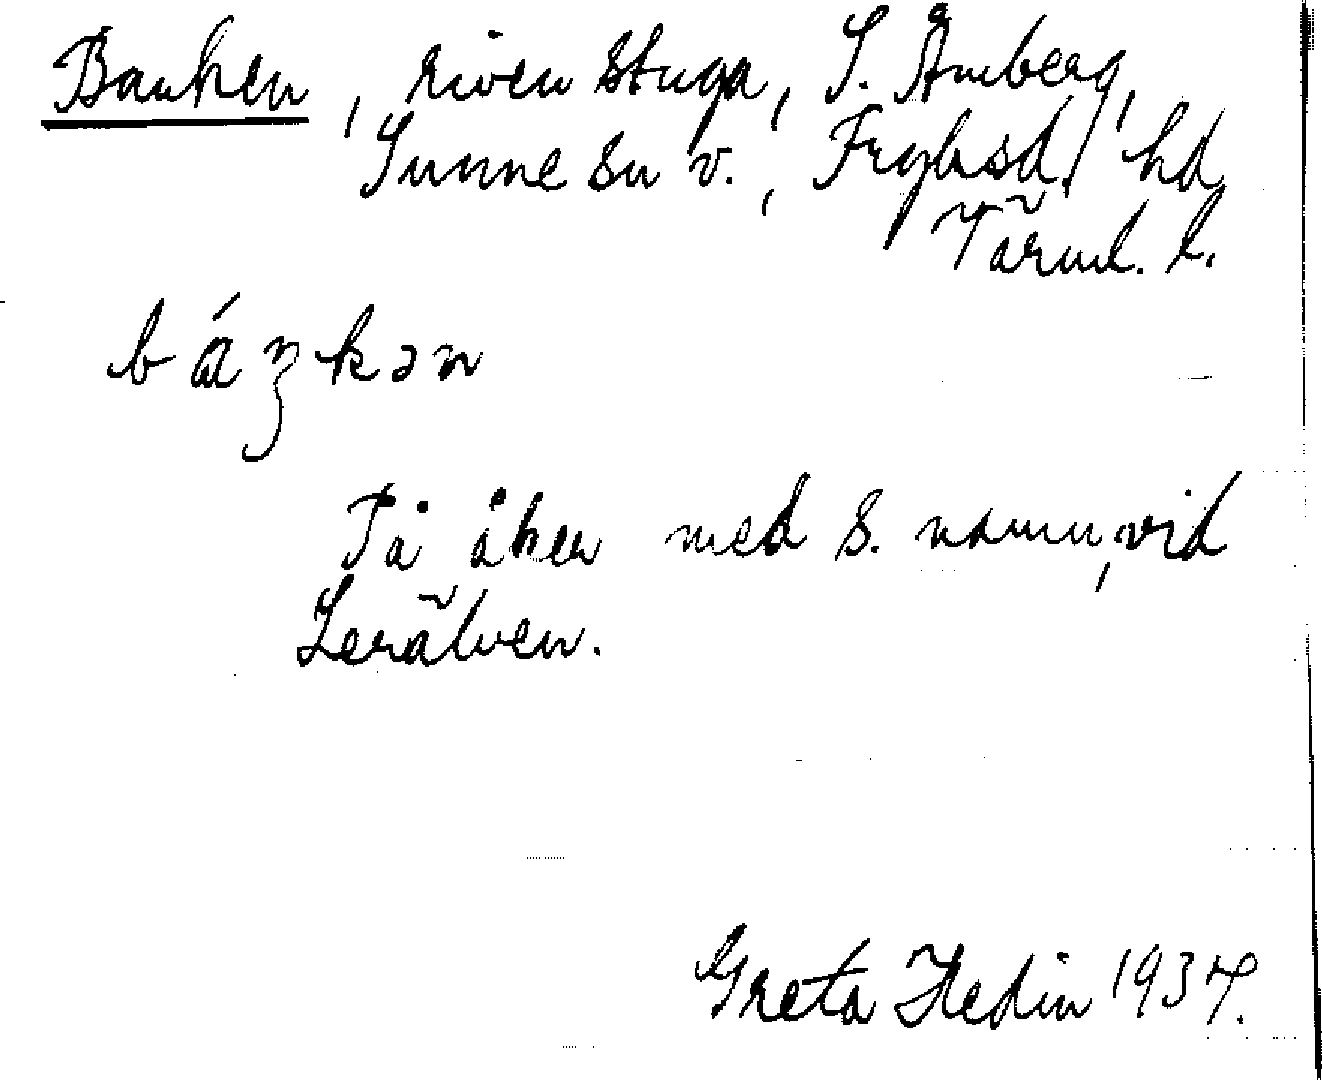 Banken, riven stuga, S. Åmberg,
Sunne sn v., Fryksd. hd
Värml. l.
báŋkən
På åker med s. namn, vid
Lerälven.
Greta Hedin 1937.